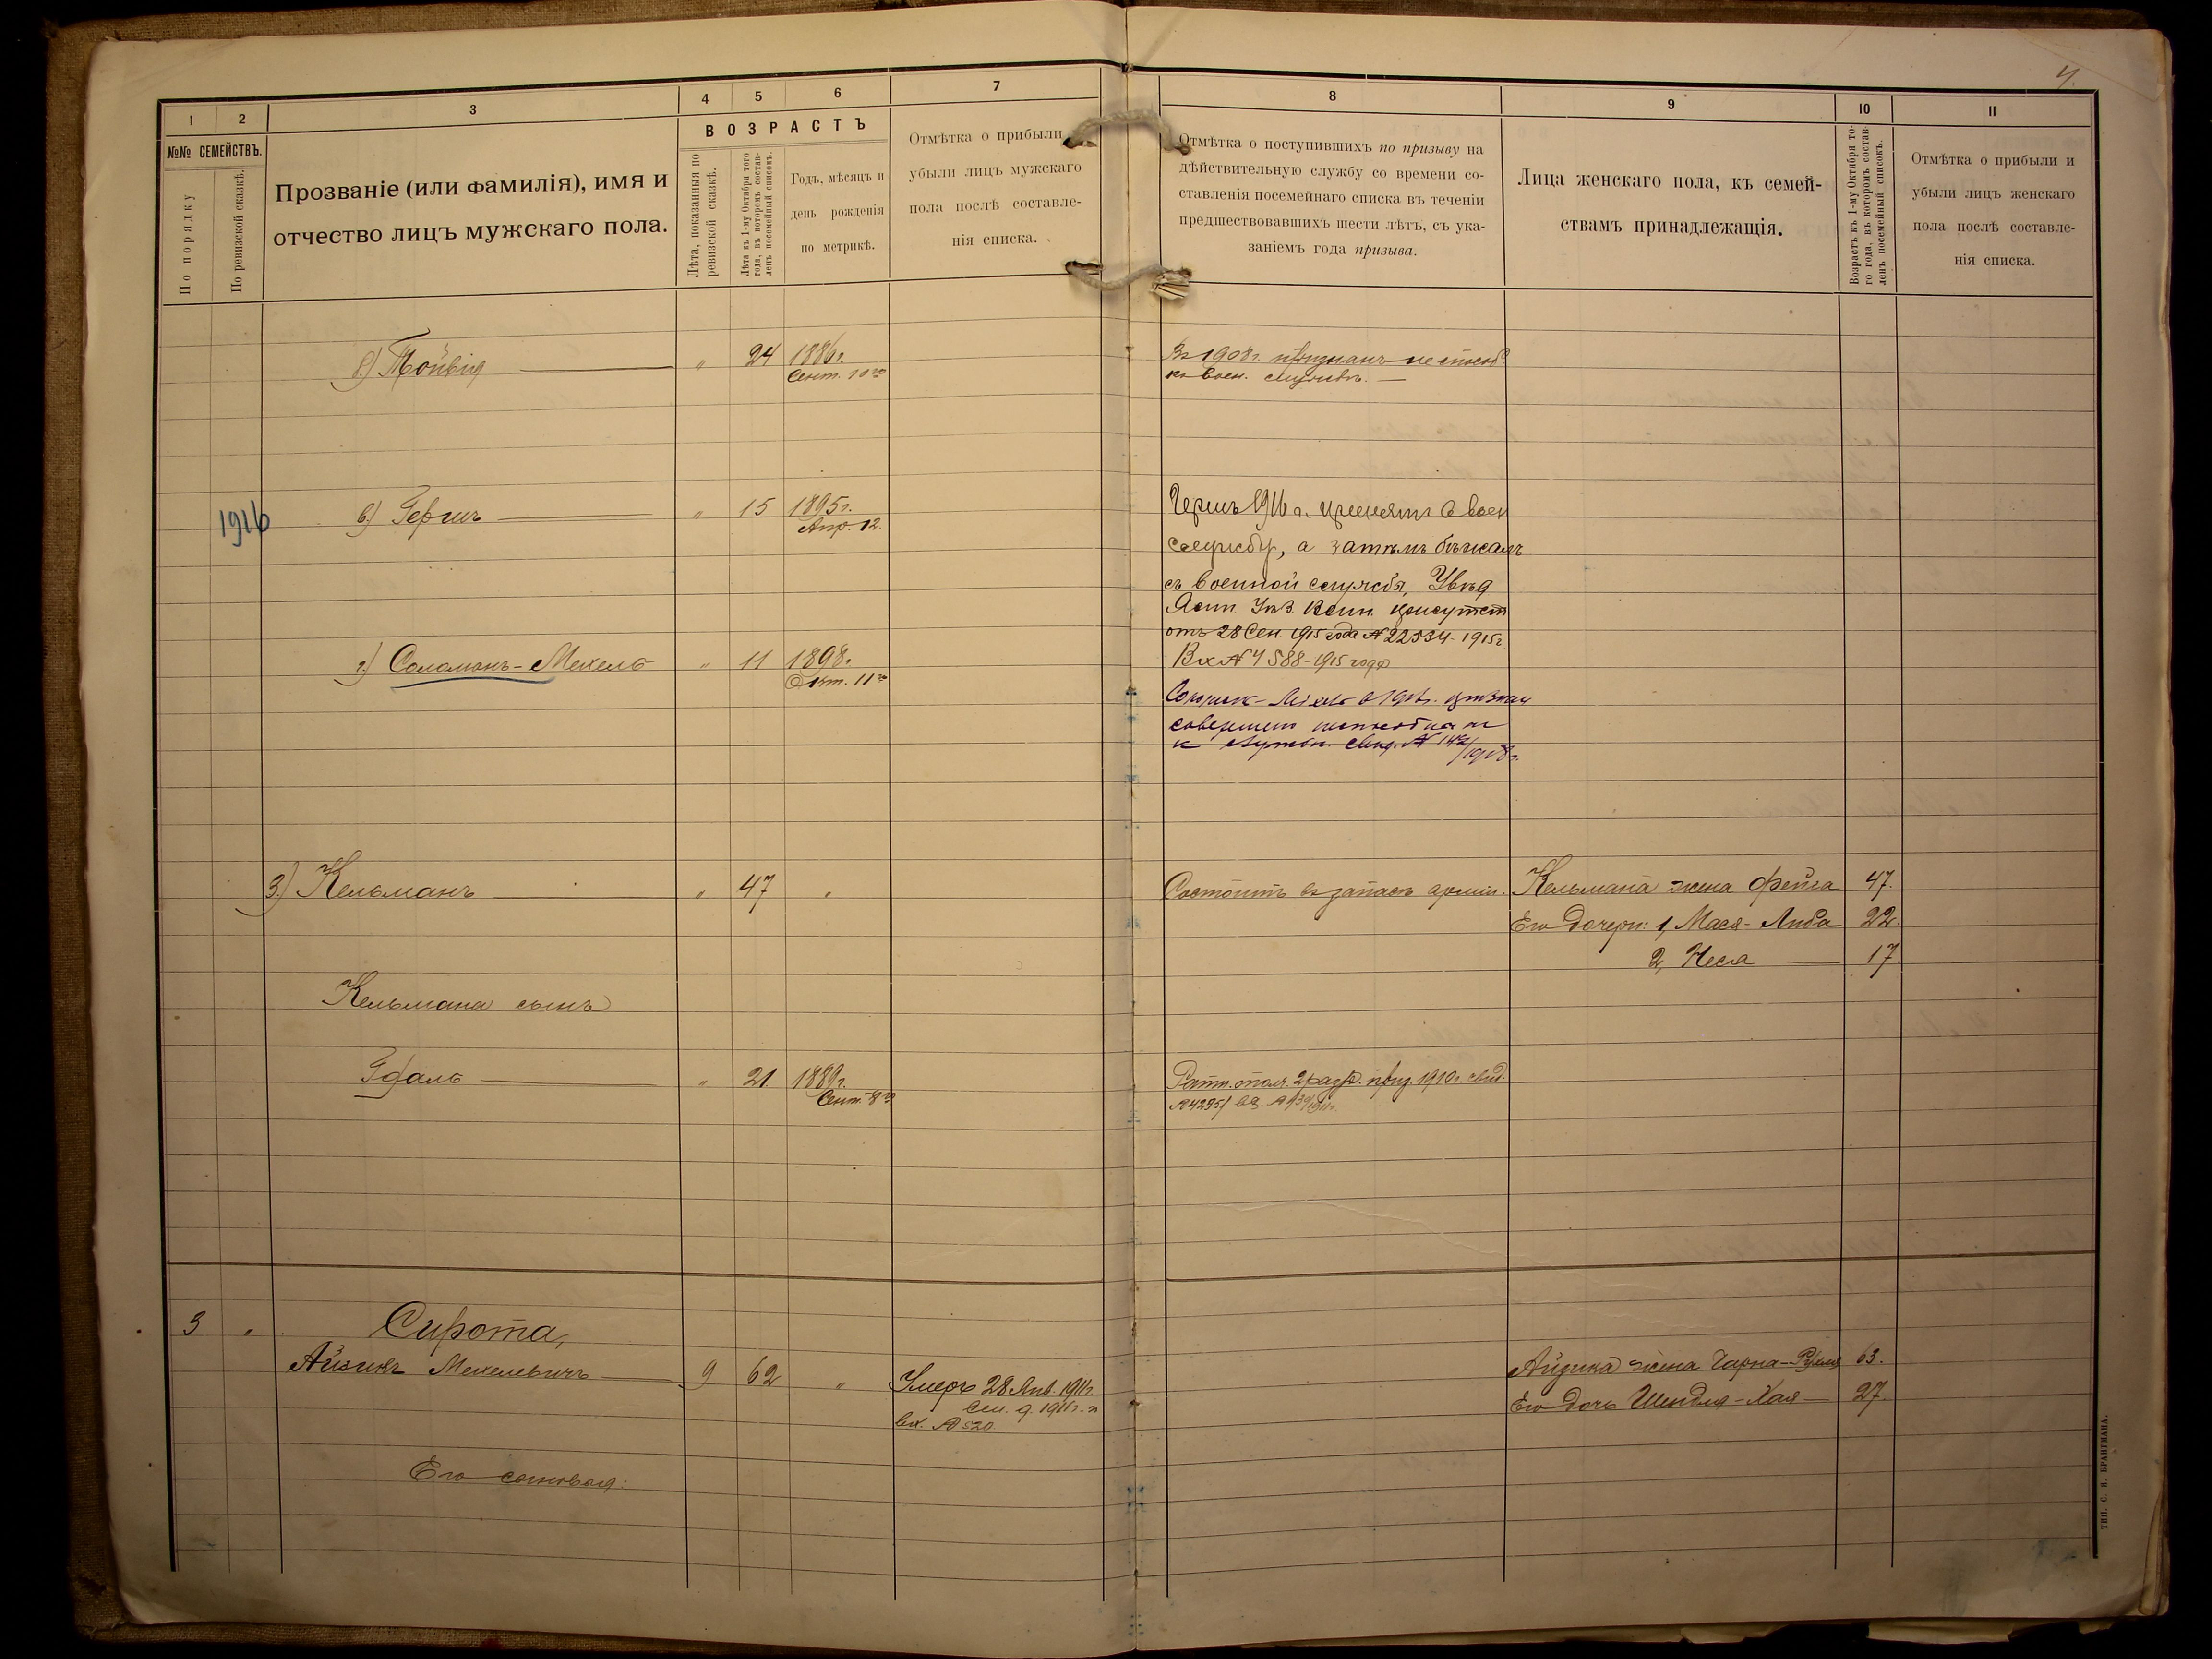 4.
1
2
3
4
5
6
7
8
9
10
11
№№ СЕМЕЙСТВЪ.
По порядку
По ревизской сказкѣ.
Прозваніе (или фамилія), имя и
отчество лицъ мужскаго пола.
ВОЗРАСТЪ
Лѣта, показанныя по
ревизской сказкѣ.
Лѣта къ 1-му Октября того
года, въ которомъ состав-
ленъ посемейный списокъ.
Годъ, мѣсяцъ и
день рожденія
по метрикѣ.
Отмѣтка о прибыли и
убыли лицъ мужскаго
пола послѣ составле-
нія списка.
Отмѣтка о поступившихъ по призыву на
дѣйствительную службу со времени со-
ставленія посемейнаго списка въ теченіи
предшествовавшихъ шести лѣтъ, съ ука-
заніемъ года призыва.
Лица женскаго пола, къ семей-
ствамъ принадлежащія.
Возрастъ къ 1-му Октября то-
го года, въ которомъ состав-
ленъ посемейный списокъ.
Отмѣтка о прибыли и
убыли лицъ женскаго
пола послѣ составле-
нія списка.
б.) Тойвія — „ 24 1886г.
Сент. 10го
Въ 1908г. признанъ неспособ.
къ воен. службѣ. —
1916 в) Гершъ — „ 15 1895г.
Апр. 12.
Гершъ 1916 г. принятъ в воен
службу, а затѣмъ бѣжалъ
съ военной службы, Увѣд
Уѣз. Воин. присутст
отъ 28 Сен. 1915 года № 22534-1915г.
Вх № 4588-1915 года
г.) Соломонъ-Мехель „ 11 1898г.
Окт. 11го
Соломон-Мехель в признан
совершенно неспособным
к службѣ. Свид. №
3.) Кельманъ — „ 47 „
Состоитъ въ запасѣ арміи.
Кельмана жена Фейга 47.
Его дочери: 1, Мася-Либа 22.
2, Неся — 17.
Кельмана сынъ
Гдаль — „ 21 1889г.
Сент. 8го
Ратн. опол. 2 разр. приз. 1910г. свид.
№ 4295/
3 „ Сирота,
Айзикъ Мехелевичъ — 9 62 „
Умеръ 28 Янв. 1911г.
вх. № 520
Айзика жена Чарна-Рухля 63.
Его дочь Шендля-Хая — 27.
Его сыновья:
ТИП. С. И. БРАНТМАНА.